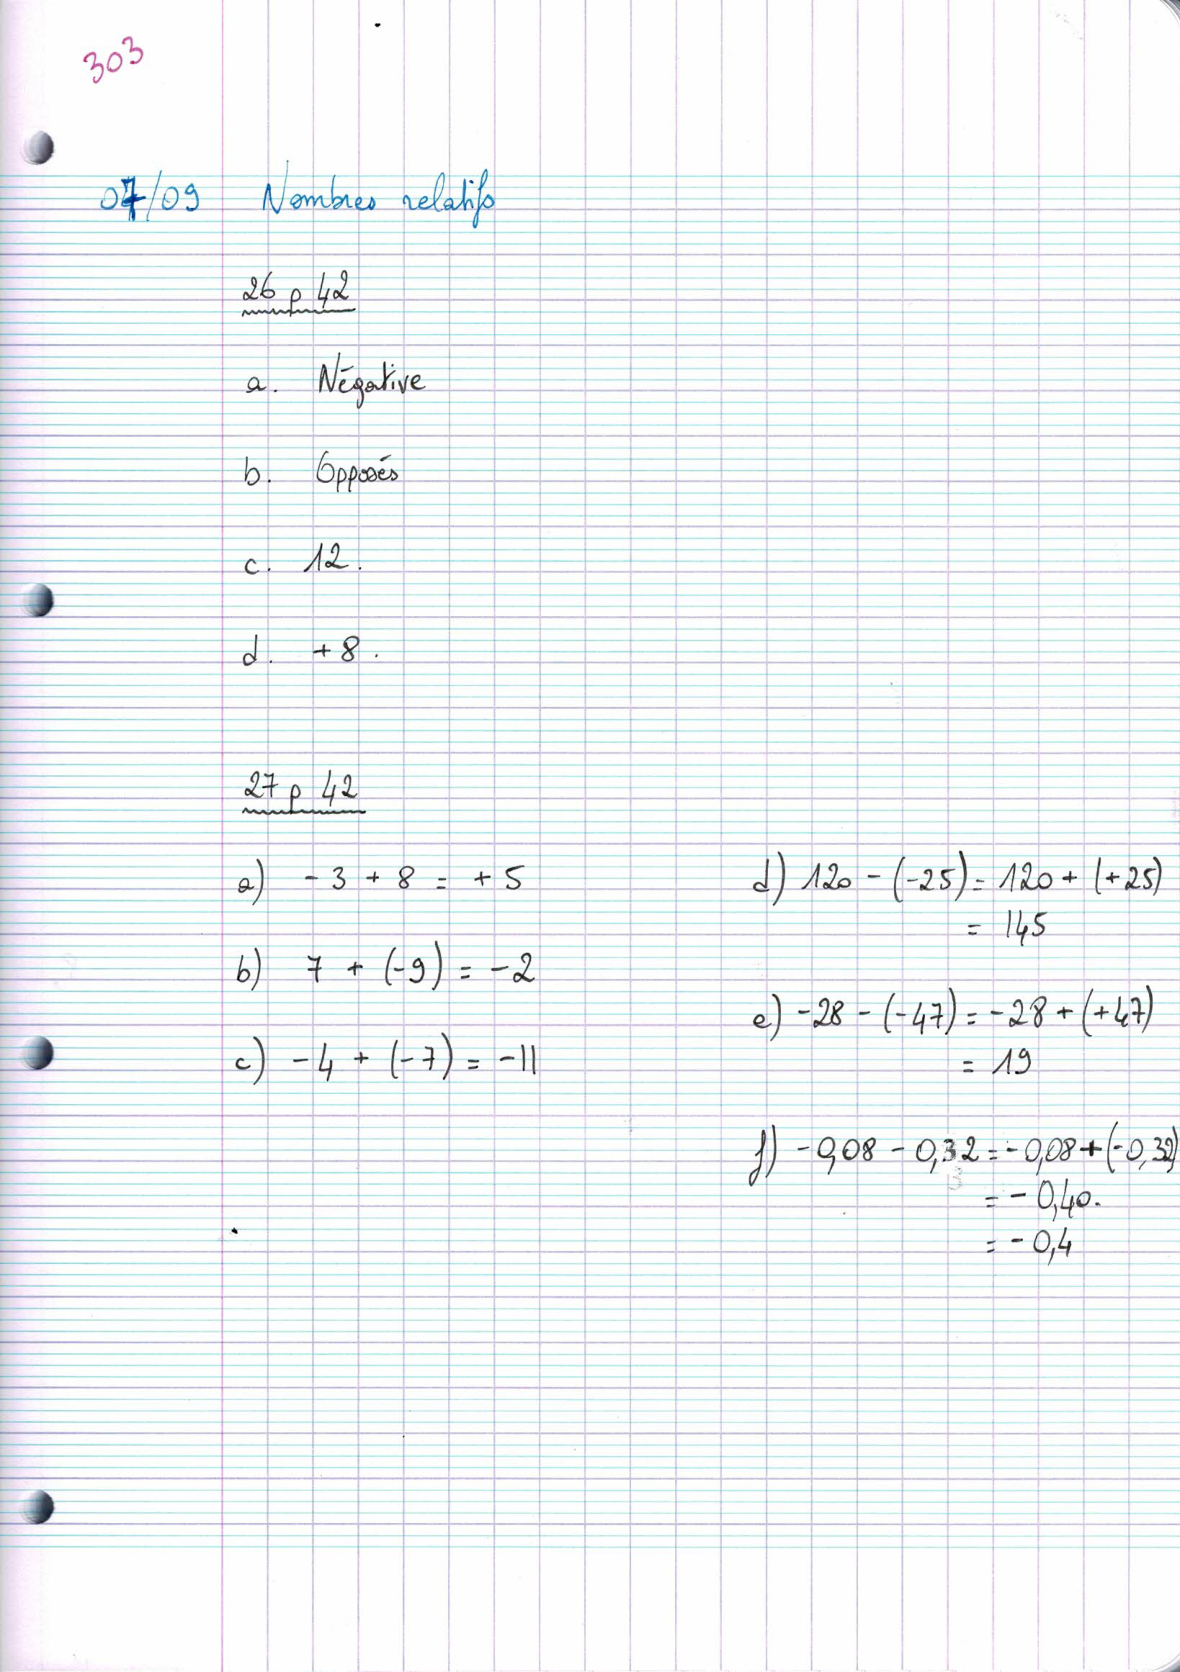 303
07/09 Nombres relatifs
26 p 42
a. Négative
b. Opposés
c. 12.
d. +8.
27 p 42
a) -3 + 8 = +5
b) 7 + (-9) = -2
c) -4 + (-7) = -11
d) 120 - (-25) = 120 + (+25)
= 145
e) -28 - (-47) = -28 + (+47)
= 19
f) -0,08 - 0,32 = -0,08 + (-0,32)
= -0,40.
= -0,4